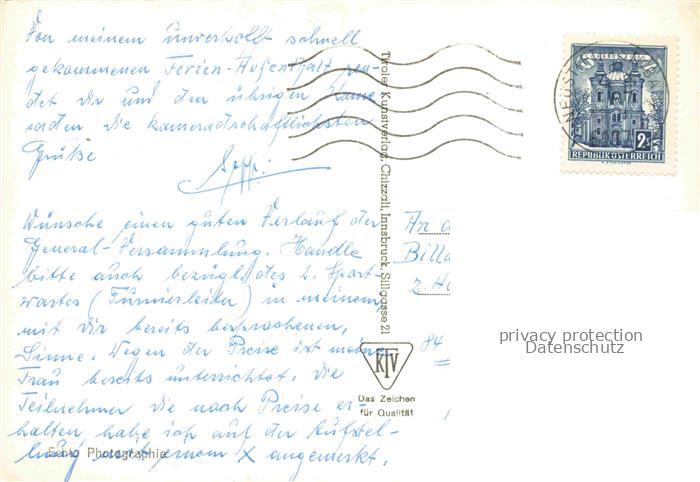 Von meinem unverhofft schnell
gekommenen Ferien-Aufenthalt sen-
det Dir und den übrigen Kame-
raden die kameradschaftlichsten
Grüße
Sepp.
Wünsche einen guten Verlauf der
General-Versammlung. Handle
bitte auch bezügl. des 2. Sport-
wartes (Turnierleiter) in meinem,
mit Dir bereits besprochenen,
Sinne. Wegen der Preise ist meine
Frau bereits unterrichtet. Die
Teilnehmer die noch Preise er-
halten, habe ich auf der Aufstel-
lung mit einem X angemerkt.
Echte Photographie
Tiroler Kunstverlag, Chizzali, Innsbruck, Sillgasse 21
KTV
Das Zeichen
für Qualität
An
Billa
z. H
84
2S
REPUBLIK ÖSTERREICH
privacy protection
Datenschutz